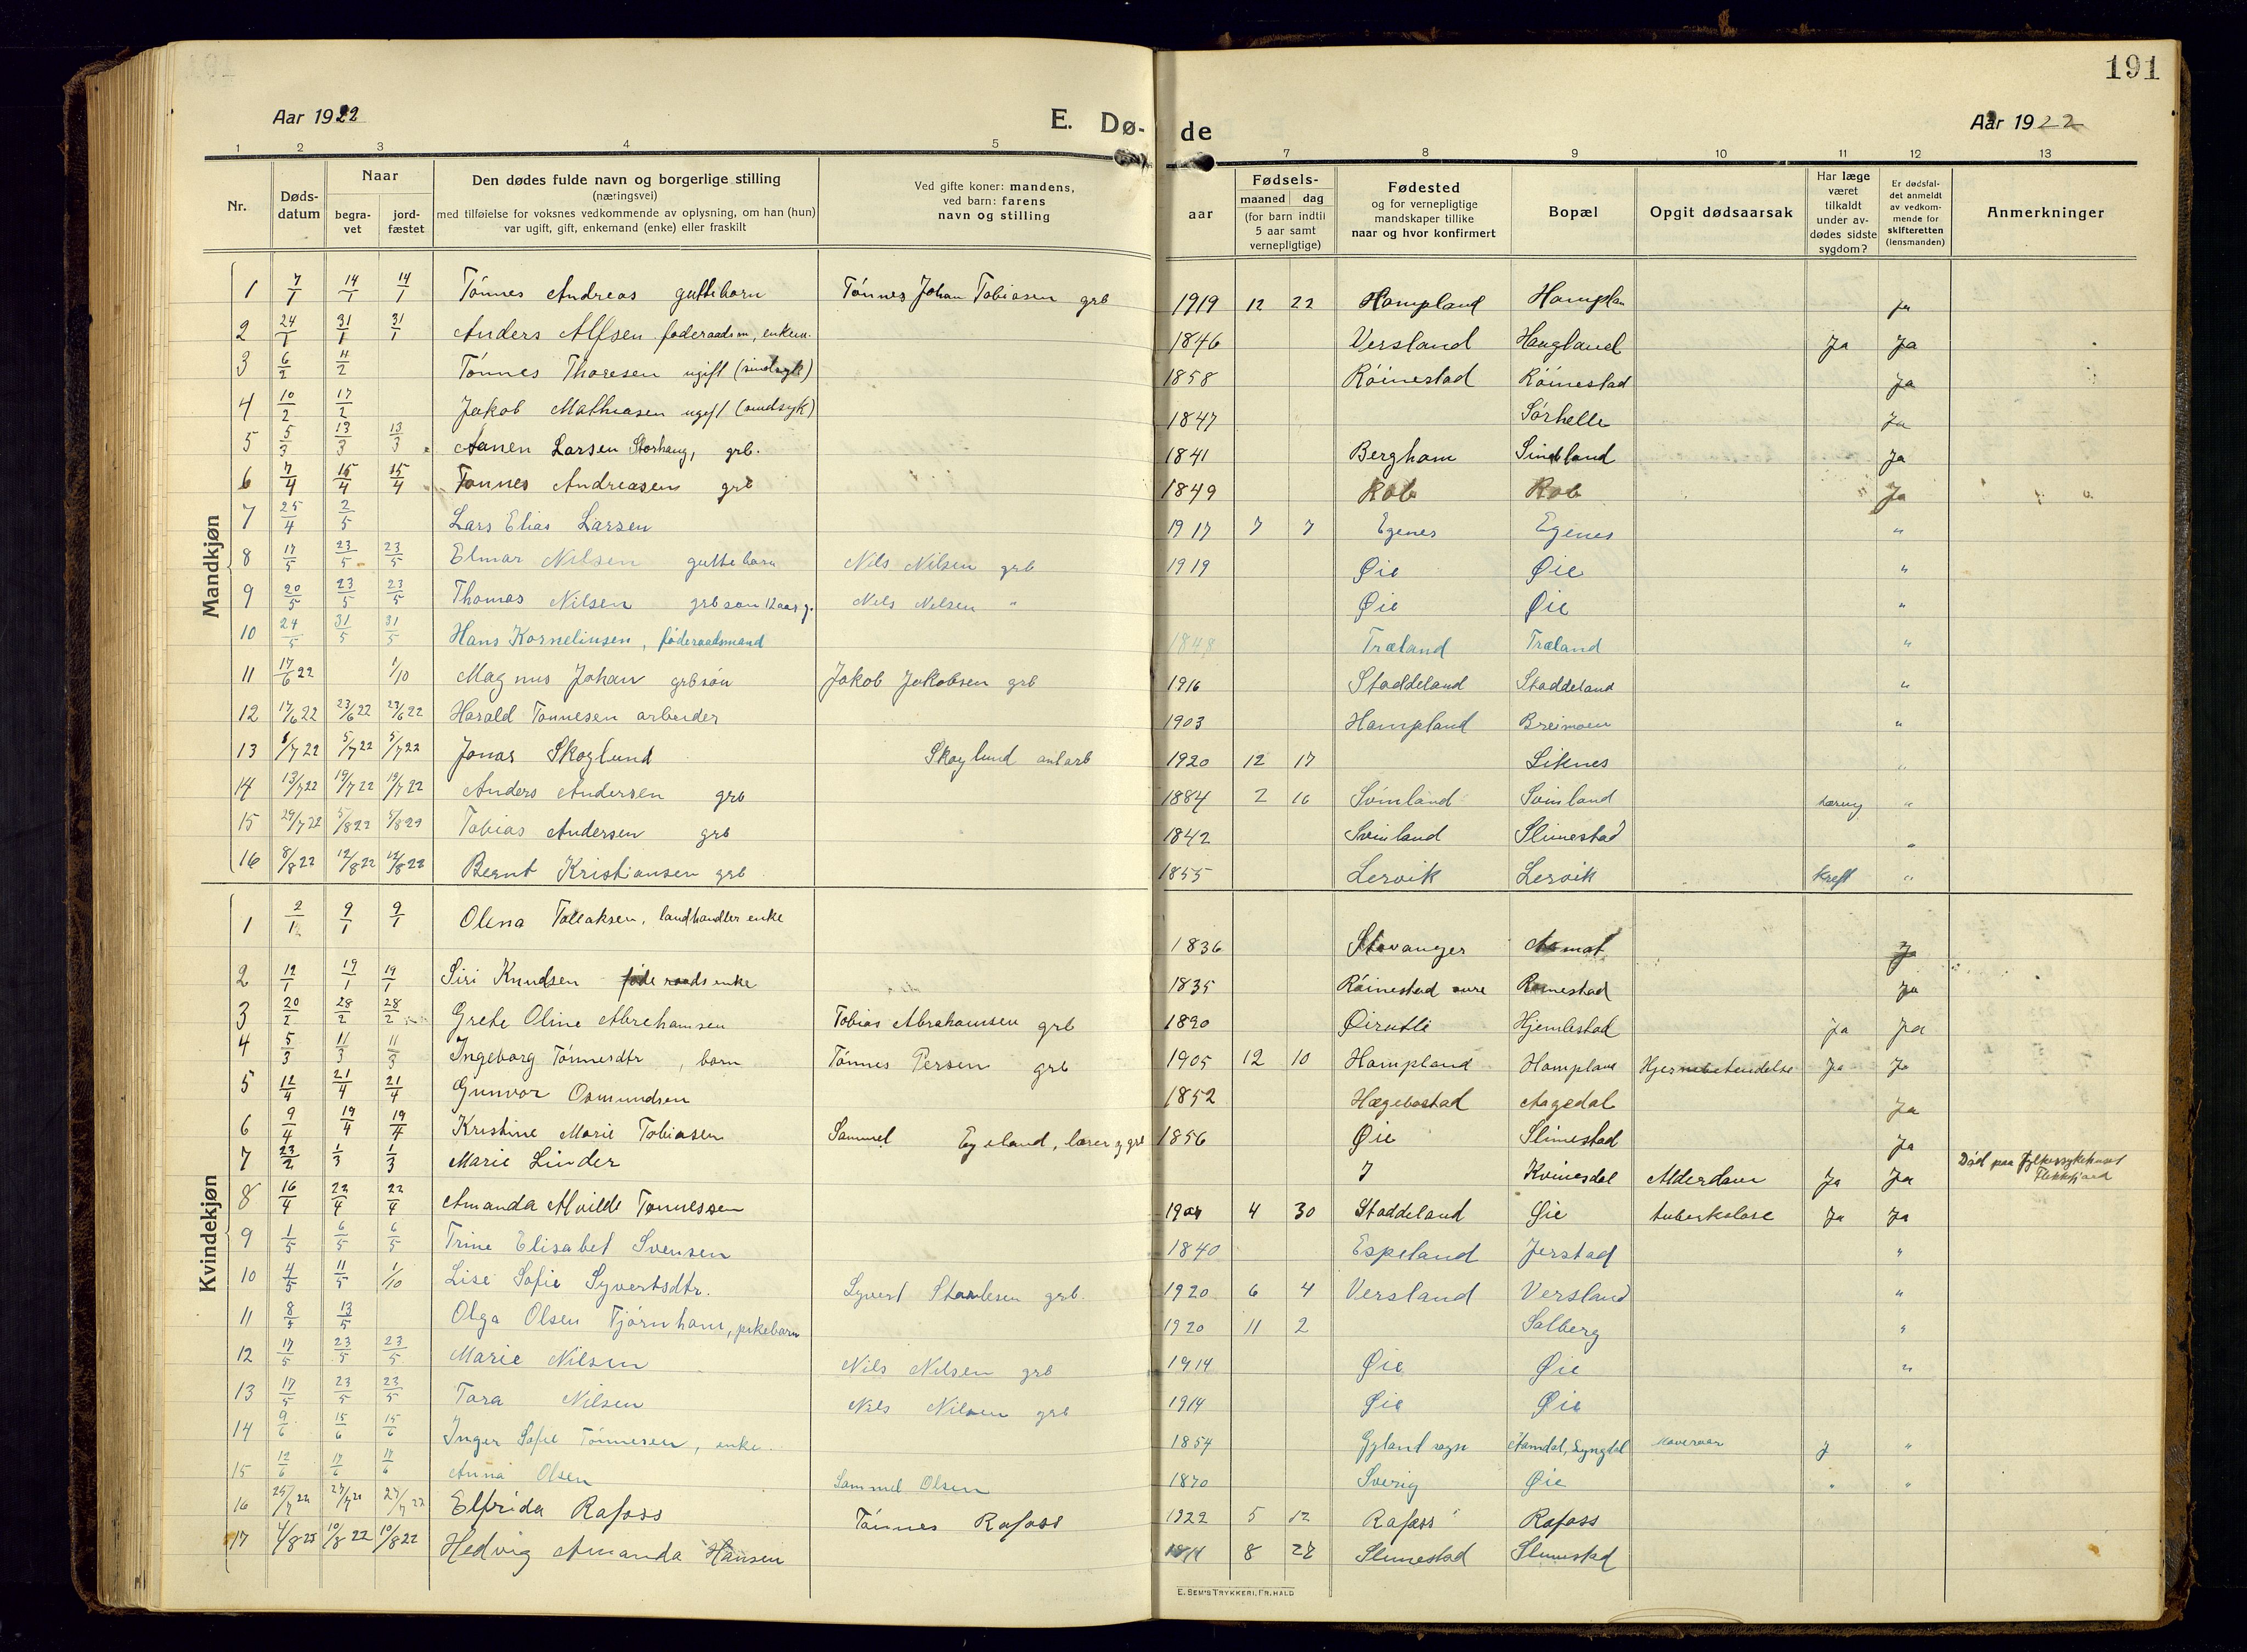 191
Aar 1922
E. Dø-
de
Aar 1922
1 2 3 4 5 7 8 9 10 11 12 13
Nr.
Døds-
datum
Naar
begra-
vet
jord-
fæstet
Den dødes fulde navn og borgerlige stilling
(næringsvei)
med tilføielse for voksnes vedkommende av oplysning, om han (hun)
var ugift, gift, enkemand (enke) eller fraskilt
Ved gifte koner: mandens,
ved barn: farens
navn og stilling
aar
Fødsels-
maaned dag
(for barn indtil
5 aar samt
vernepligtige)
Fødested
og for vernepligtige
mandskaper tillike
naar og hvor konfirmert
Bopæl
Opgit dødsaarsak
Har læge
været
tilkaldt
under av-
dødes sidste
sygdom?
Er dødsfal-
det anmeldt
av vedkom-
mende for
skifteretten
(lensmanden)
Anmerkninger
Mandkjøn
1 7/1 14/1 14/1 Tønnes Andreas guttebarn Tønnes Johan Tobiasen grb 1919 12 22 Hompland Homplan ja
2 24/1 31/1 31/1 Anders Alfsen føderaadsm, enkem. 1846 Versland Haugland Ja Ja
3 6/2 11/2 Tønnes Thoresen ugift (sindsyk) 1858 Röinestad Röinestad Ja
4 10/2 17/2 Jakob Mathiasen ugift (sindsyk) 1847 Sørhelle Ja
5 5/3 13/3 13/3 Aanen Larsen Storhaug, grb. 1841 Bergham Sindland Ja
6 7/4 15/4 15/4 Tønnes Andreasen grb 1849 Rob Rob Ja
7 25/4 2/5 Lars Elias Larsen 1917 7 7 Egenes Egenes "
8 17/5 23/5 23/5 Elmar Nilsen guttebarn Nils Nilsen grb 1919 Øie Øie "
9 20/5 23/5 23/5 Thomas Nilsen grbsøn 12 aar g. Nils Nilsen " Øie Øie "
10 24/5 31/5 31/5 Hans Kornelinsen, føderaadsmand 1848 Træland Træland "
11 17/6 22 1/10 Magnus Johan grbsøn Jakob Jakobsen grb 1916 Staddeland Staddeland "
12 17/6 22 23/6 22 23/6 22 Harald Tønnesen arbeider 1903 Hompland Breimoen "
13 1/7 22 5/7 22 5/7 22 Jonas Skoglund Skoglund anl arb 1920 12 17 Liknes "
14 13/7 22 19/7 22 19/7 22 Anders Andersen grb 1884 2 16 Svinland Svinland tæring "
15 29/7 22 5/8 22 5/8 22 Tobias Andersen grb 1842 Svinland Slimestad "
16 8/8 22 12/8 22 12/8 22 Bernt Kristiansen grb 1855 Lervik Lervik kreft "
Kvindekjøn
1 2/1 9/1 9/1 Olena Tollaksen, landhandler enke 1836 Stavanger Aamot Ja
2 12/1 19/1 19/1 Siri Knudsen føderaadsenke 1835 Röinestad øvre Röinestad Ja
3 20/2 28/2 28/2 Grete Oline Abrehamsen Tobias Abrahamsen grb 1890 Øirutli Hjemlestad ja ja
4 5/3 11/3 11/3 Ingeborg Tønnesdtr, barn Tönnes Persen grb 1905 12 10 Hompland Homplan Hjernebetendelse Ja Ja
5 12/4 21/4 21/4 Gunvor Osmundsen 1852 Hægebostad Aagedal Ja
6 9/4 19/4 19/4 Kristine Marie Tobiasen Sammel Egeland, lærer og grb 1856 Øie Slimestad Ja
7 23/2 1/3 1/3 Marie Linder Kvinesdal Alderdom Ja Ja Død paa fylkessykehuset
Flekkefjord
8 16/4 22/4 22/4 Amanda Alvilde Tønnessen 4 30 Staddeland Øie tuberkulose Ja Ja
9 1/5 6/5 6/5 Trine Elisabet Svensen 1840 Espeland Jerstad "
10 4/5 11/5 1/10 Lise Sofie Syvertsdtr. Syvert grb. 1920 6 4 Versland Versland "
11 8/5 13/5 Olga Olsen Tjørnhom, pikebarn 1920 11 2 Salberg "
12 17/5 23/5 23/5 Marie Nilsen Nils Nilsen grb 1914 Øie Øie "
13 17/5 23/5 23/5 Tora Nilsen Nils Nilsen grb 1914 Øie Øie
14 9/6 15/6 15/6 Inger Sofie Tønnesen, enke. 1854 Gyland sogn Aamdal, Lyngdal Mavesaar J "
15 12/6 17/6 17/6 Anna Olsen Sammel Olsen 1870 Sverig Øie " "
16 25/7 22 27/7 22 27/7 22 Elfrida Rafoss Tønnes Rafoss 1922 5 12 Rafoss Rafoss
17 4/8 22 10/8 22 10/8 22 Hedvig Amanda Hansen 8 28 Slimestad Slimestad
E. SEM'S TRYKKERI, FR. HALD